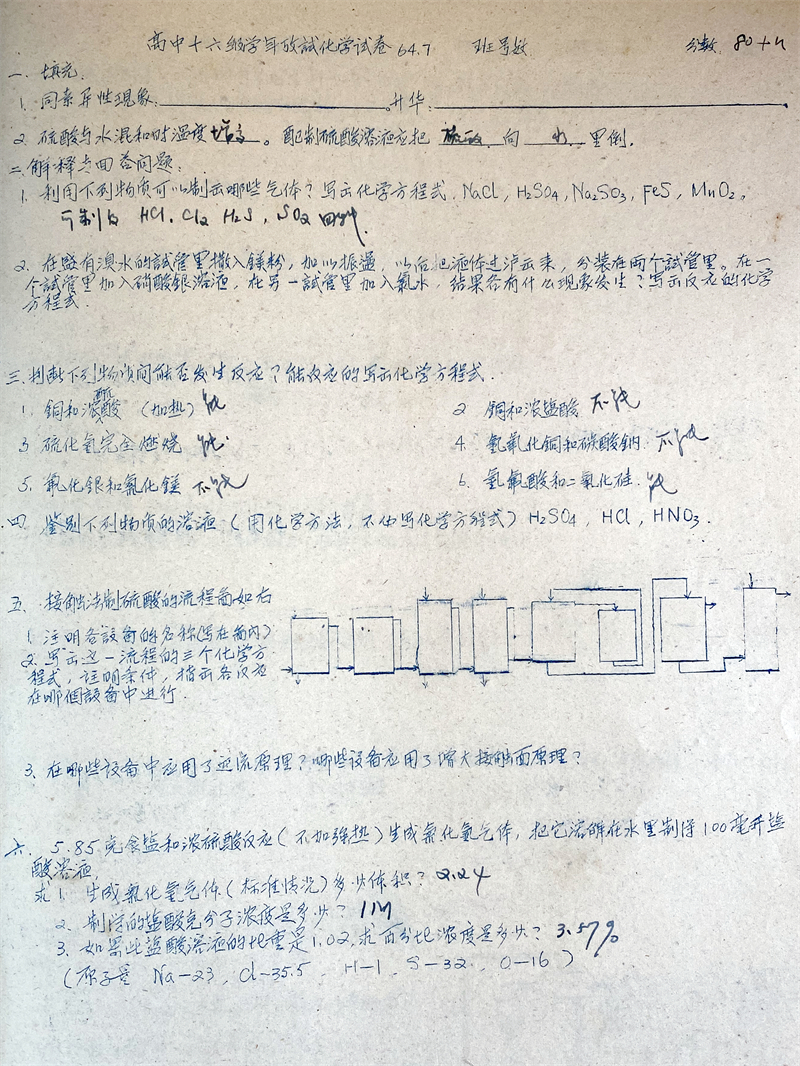 高中十六级学年改試化学試卷 64.7 班号数 分数 80+4
一. 填充:
1. 同素异性现象: 升华:
2. 硫酸与水混和时温度增高。配制硫酸溶液应把 硫酸 向 水 里倒.
二. 解释与回答问题:
1. 利用下列物质可以制出哪些气体?写出化学方程式. NaCl, H₂SO₄, Na₂SO₃, FeS, MnO₂.
可制的 HCl. Cl₂ H₂S, SO₂ 四种.
2. 在盛有溴水的試管里撒入鎂粉, 加以振盪, 以后把液体过滤出来, 分装在两个試管里。在一
个試管里加入硝酸銀溶液, 在另一試管里加入氯水, 結果各有什么现象发生?写出反应的化学
方程式.
三. 判断下列物质间能否发生反应?能反应的写出化学方程式.
1. 銅和浓酸 (加热) 能
2. 銅和浓盐酸 不能
3. 硫化氢完全燃烧 能.
4. 氢氧化銅和碳酸鈉. 不能
5. 氯化銀和氯化鎂 不能
6. 氢氟酸和二氧化硅. 能
四. 鉴别下列物质的溶液 (用化学方法, 不必写化学方程式) H₂SO₄, HCl, HNO₃.
五. 接触法制硫酸的流程备如右
1. 注明各設备的名称(写在备內)
2. 写出这一流程的三个化学方
程式, 註明条件, 指出各反应
在哪個設备中进行.
3. 在哪些设备中应用了逆流原理?哪些设备应用了增大接触面原理?
六. 5.85克食盐和浓硫酸反应(不加强热)生成氯化氢气体, 把它溶解在水里制得100毫升盐
酸溶液,
求 1. 生成氯化氢气体(标准情况)多少体积? 2.24
2. 制得的盐酸克分子浓度是多少? 1M
3. 如果此盐酸溶液的比重是1.02, 求百分比浓度是多少? 3.57%
(原子量 Na-23, Cl-35.5, H-1, S-32, O-16)